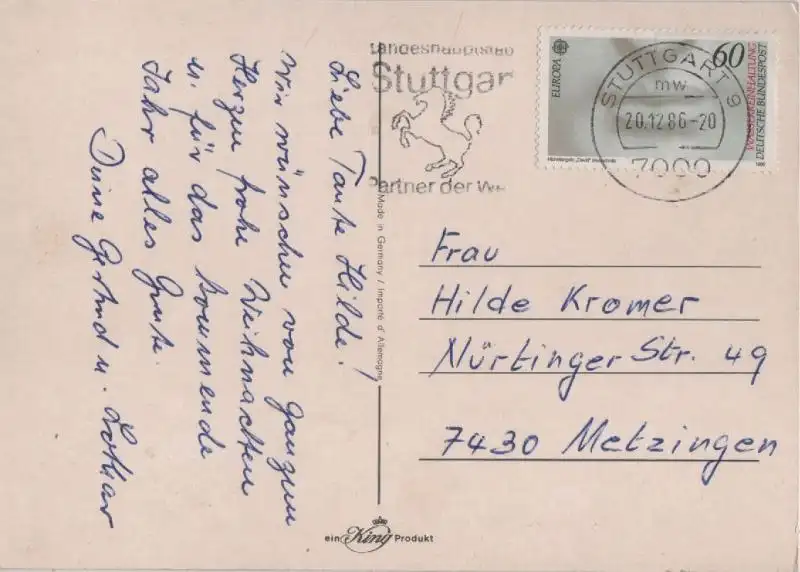 Liebe Tante Hilde!
Wir wünschen von ganzem
Herzen frohe Weihnachten
u. für das kommende
Jahr alles Gute.
Deine Gertrud u. Lothar
Landeshauptstadt
Stuttgart
Partner der We
EUROPA
60
WASSERREINHALTUNG
DEUTSCHE BUNDESPOST
STUTTGART 9
mw
20.12.86-20
7000
Made in Germany / Importé d'Allemagne
Frau
Hilde Kromer
Nürtinger Str. 49
7430 Metzingen
ein King Produkt